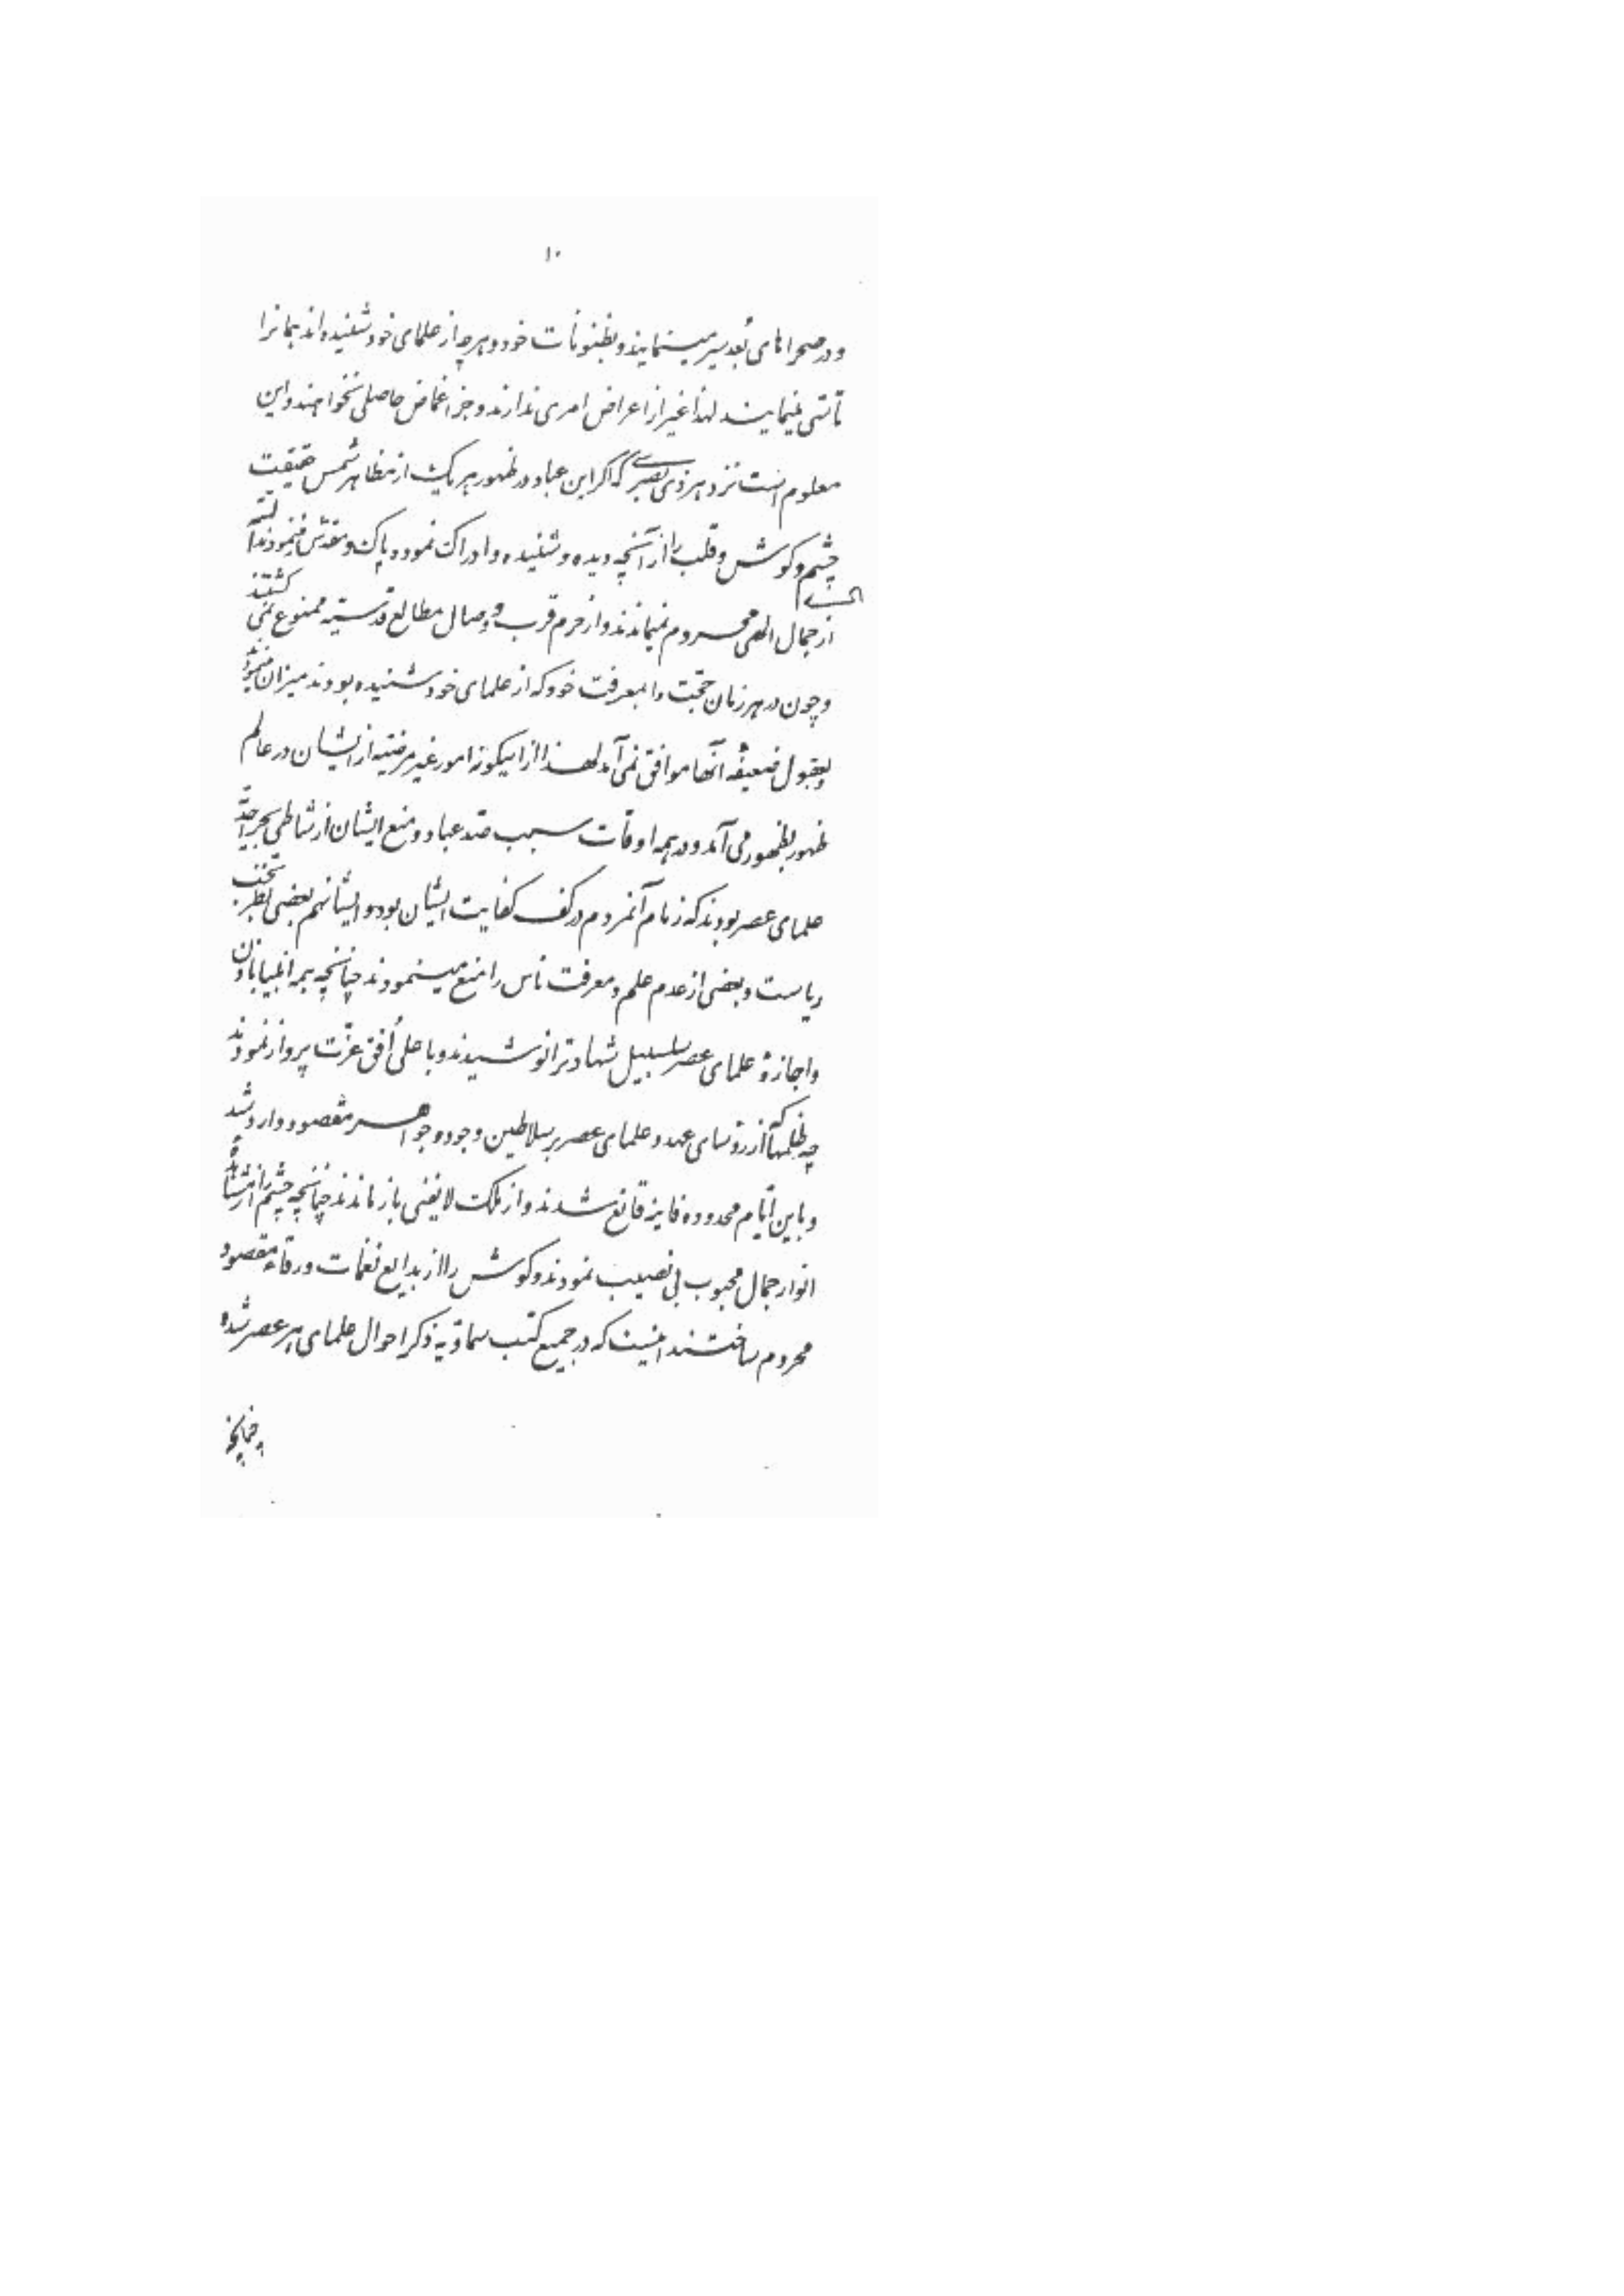 ۱۰
و در صحراهای بُعد سیر مینمایند و بظنونات خود و هر چه از علمای خود شنیده‌اند بهمانرا
تأسّی مینمایند لهذا غیر از اعراض امری ندارند و جز اغماض حاصلی نخواهند و این
معلوم است نزد هر ذی بصری که اگر این عباد در ظهور هر یک از مظاهر شمس حقیقت
چشم و گوش و قلب را از آنچه دیده و شنیده و ادراک نموده پاک و مقدّس مینمودند البتّه
البتّه
از جمال الهی محروم نمیماندند و از حرم قرب و وصال مطالع قدسیّه ممنوع نمی گشتند
و چون در هر زمان حجّت را بمعرفت خود که از علمای خود شنیده بودند میزان مینمودند
و بعقول ضعیفه آنها موافق نمی‌آمد لهذا از اینگونه امور غیر مرضیّه از ایشان در عالم
ظهور بظهور می‌آمد و در همه اوقات سبب صدّ عباد و منع ایشان از شاطی بحر احدیّه
علمای عصر بودند که زمام آنمردم در کف کفایت ایشان بود و ایشانهم بعضی نظر بحبّ
ریاست و بعضی از عدم علم و معرفت ناس را منع مینمودند چنانچه همه انبیا باذن
و اجازهٔ علمای عصر سلسبیل شهادترا نوشیدند و باعلی اُفق عزّت پرواز نمودند
چه ظلمها که از رؤسای عهد و علمای عصر بر سلاطین وجود و جواهر مقصود وارد شد
و باین ایّام محدوده فانیه قانع شدند و از ملک لا یفنی باز ماندند چنانچه چشم را از مشاهدهٔ
انوار جمال محبوب بی نصیب نمودند و گوش را از بدایع نغمات ورقاء مقصود
محروم ساختند اینست که در جمیع کتب سماویّه ذکر احوال علمای هر عصر شده
چنانچه